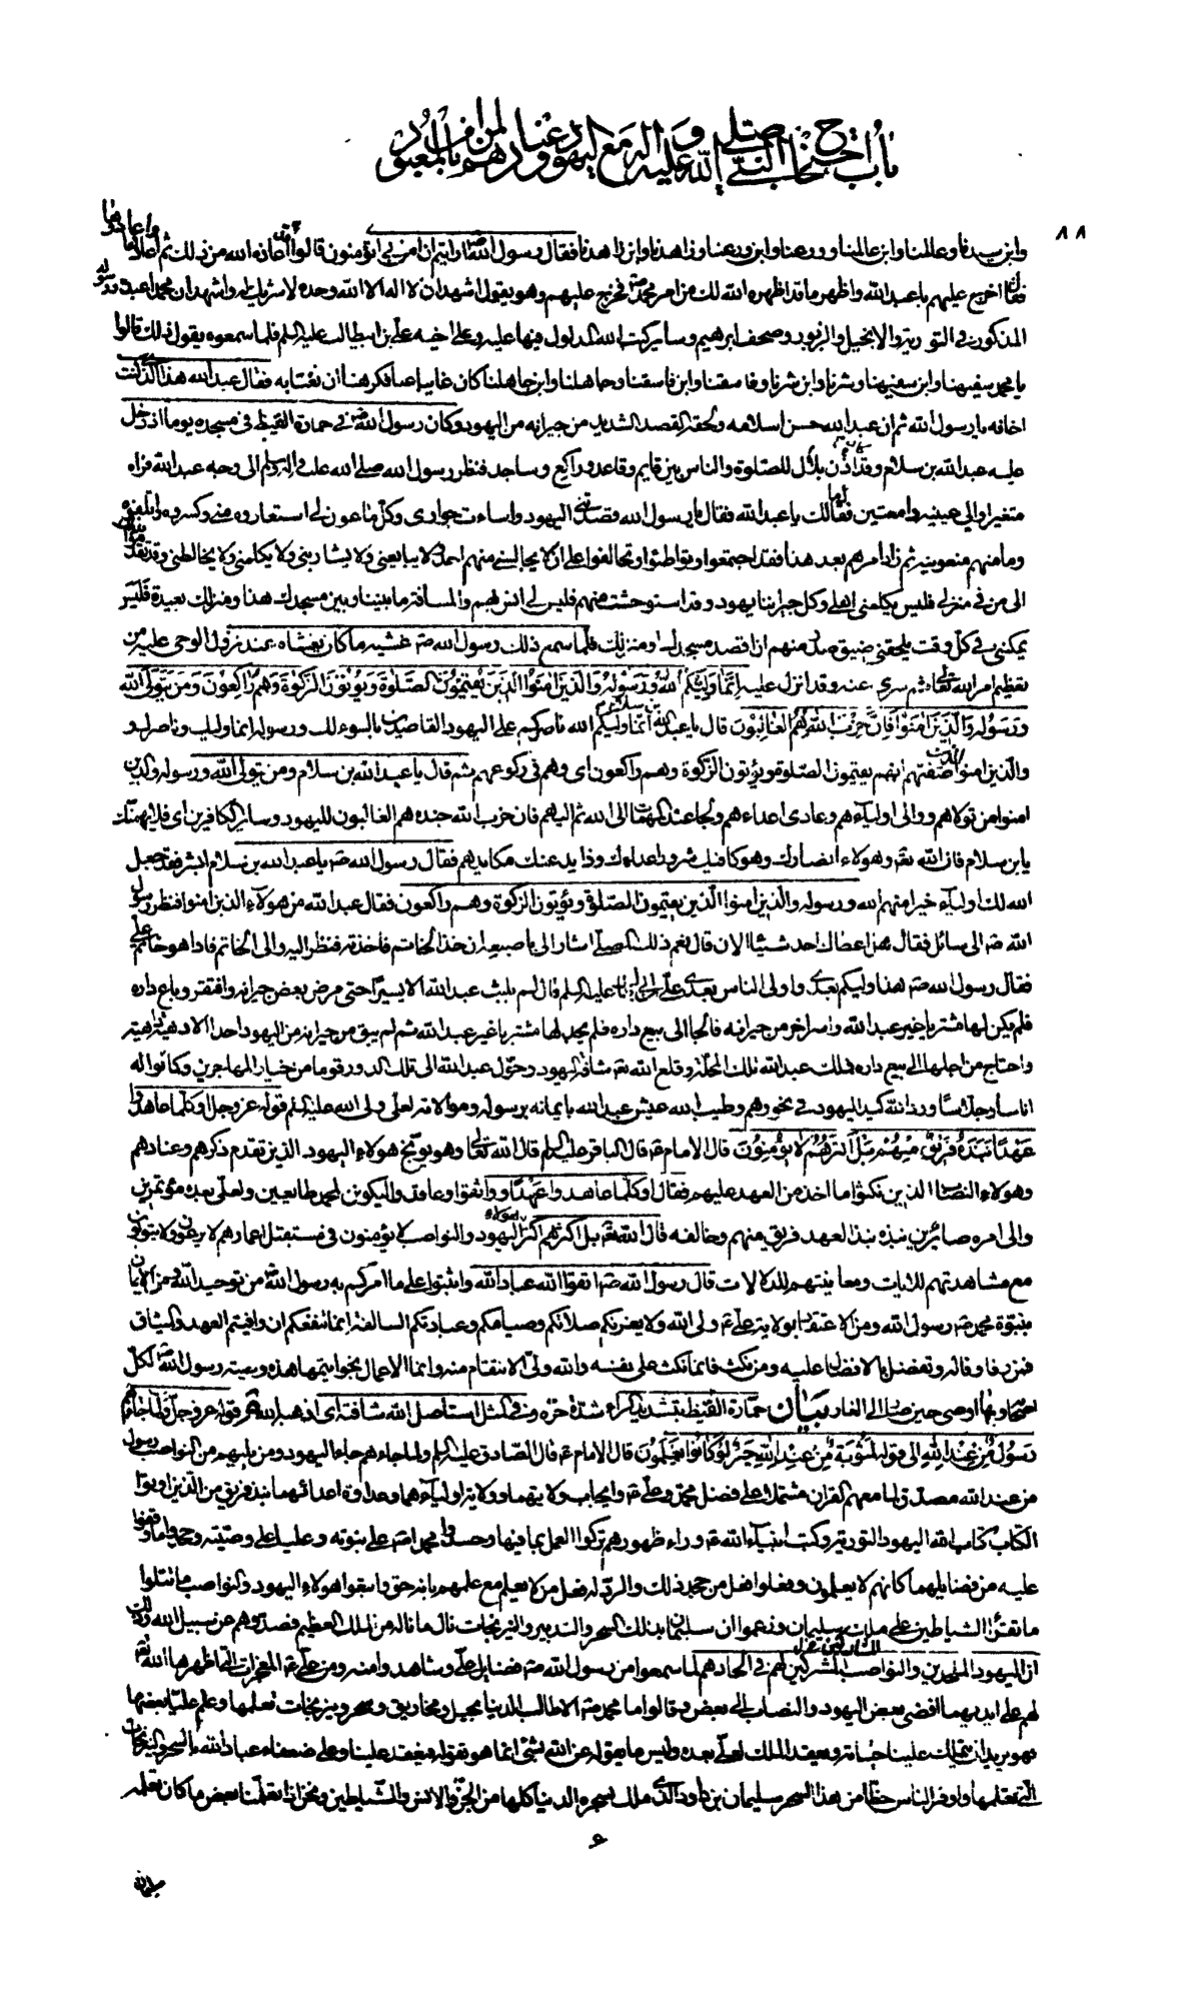 باب احتجاج النبي صلى الله عليه وآله مع اليهود
٨٨
وابن سيدنا وعالمنا وابن عالمنا وورعنا وابن ورعنا وزاهدنا وابن زاهدنا فقال رسول الله ص ارايتم ان امن بي اتؤمنون قالوا قد اعاذه الله من ذلك ثم اعادها واعادوها
فقال اخرج عليهم يا عبد الله واظهر ما قد اظهره الله لك من امر محمد فخرج عليهم وهو يقول اشهد ان لا اله الا الله وحده لا شريك له واشهد ان محمدا عبده ورسوله
المذكور في التورية والانجيل والزبور وصحف ابرهيم وساير كتب الله المدلول فيها عليه وعلى اخيه علي بن ابيطالب عليه السلم فلما سمعوه يقول ذلك قالوا
يا محمد سفيهنا وابن سفيهنا وشرنا وابن شرنا وفاسقنا وابن فاسقنا وجاهلنا وابن جاهلنا كان غايبا عنا فكرهنا ان نغتابه فقال عبد الله هذا الذي كنت
اخافه يا رسول الله ثم ان عبد الله حسن اسلامه ولحقه القصد الشديد من جيرانه من اليهود وكان رسول الله ص في حمارة القيظ في مسجده يوما اذ دخل
عليه عبد الله بن سلام وقد اذن بلال للصلوة والناس بين قايم وقاعد وراكع وساجد فنظر رسول الله صلى الله عليه واله وسلم الى وجه عبد الله فراه
متغيرا والى عينيه دامعتين فقال ما لك يا عبد الله فقال يا رسول الله قصدتني اليهود واساءت جواري وكل ماعون لي استعاروه مني وكسروه واتلفوه
وما منهم منعونيه ثم زاد امرهم بعد هذا فقد اجتمعوا وتواطئوا وتحالفوا على ان لا يجالسني منهم احد ولا يبايعني ولا يشاربني ولا يكلمني ولا يخالطني وقد تقدموا بذلك
الى من في منزلي فليس يكلمني اهلي وكل جيراننا يهود وقد استوحشت منهم فليس لي انس بهم والمسافة ما بيننا وبين مسجدك هذا ومنزلك بعيدة فليس
يمكنني في كل وقت يلحقني ضيق صدر منهم ان اقصد مسجدك او منزلك فلما سمع ذلك رسول الله ص غشيه ما كان يغشاه عند نزول الوحي عليه من
تعظيم امر الله تعالى ثم سري عنه وقد انزل عليه انما وليكم الله ورسوله والذين امنوا الذين يقيمون الصلوة ويؤتون الزكوة وهم راكعون ومن يتول الله
ورسوله والذين امنوا فان حزب الله هم الغالبون قال يا عبد الله بن سلام انما وليكم الله ناصركم على اليهود القاصدين بالسوء لك ورسوله انما وليك وناصرك
والذين امنوا الذين صفتهم انهم يقيمون الصلوة ويؤتون الزكوة وهم راكعون اي وهم في ركوعهم ثم قال يا عبد الله بن سلام ومن يتول الله ورسوله والذين
امنوا من تولاهم ووالى اولياءهم وعادى اعداءهم ولجا عند المهمات الى الله ثم اليهم فان حزب الله جنده هم الغالبون لليهود وساير الكافرين اي فلا يهمنك
يا بن سلام فان الله تع وهولاء انصارك وهو كافيك شرور اعدائك وذايد عنك مكايدهم فقال رسول الله ص يا عبد الله بن سلام ابشر فقد جعل
الله لك اولياء خيرا منهم الله ورسوله والذين امنوا الذين يقيمون الصلوة ويؤتون الزكوة وهم راكعون فقال عبد الله من هولاء الذين امنوا فنظر رسول
الله ص الى سائل فقال هل اعطاك احد شيئا الان قال نعم ذلك المصلي اشار الي باصبعه ان خذ الخاتم فاخذته فنظرت اليه والى الخاتم فاذا هو خاتم علي
فقال رسول الله ص هذا وليكم بعدي واولى الناس بعدي علي بن ابي طالب عليه السلم قال ثم لم يلبث عبد الله الا يسيرا حتى مرض بعض جيرانه وافتقر وباع داره
فلم يكن لها مشتر غير عبد الله واسر اخر من جيرانه فالجا الى بيع داره فلم يجد لها مشتريا غير عبد الله ثم لم يبق من جيرانه من اليهود احد الا دهته داهية
واحتاج من اجلها الى بيع داره فملك عبد الله تلك المحلة وقلع الله تع شافة اليهود وحول عبد الله الى تلك الدور قوما من خيار المهاجرين وكانوا له
اناسا وجلاسا ورد الله كيد اليهود في نحورهم وطيب الله عيش عبد الله بايمانه برسوله وموالاته لعلي ولي الله عليه السلم قوله عز وجل اوكلما عاهدوا
عهدا نبذه فريق منهم بل اكثرهم لا يؤمنون قال الامام ع قال الباقر عليه السلم قال الله تعالى وهو يوبخ هولاء اليهود الذين تقدم ذكرهم وعنادهم
وهولاء النصاب الذين نكثوا ما اخذ من العهد عليهم فقال اوكلما عاهدوا عهدا وواثقوا وعاقدوا ليكونن لمحمد طائعين ولعلي بعده مؤتمرين
والى امره صائرين نبذه نبذ العهد فريق منهم وخالفه قال الله تع بل اكثرهم اكثر هولاء اليهود والنواصب لا يؤمنون في مستقبل اعمارهم لا يرعوون ولا يتوبون
مع مشاهدتهم للايات ومعاينتهم للدلالات قال رسول الله ص اتقوا الله عباد الله واثبتوا على ما امركم به رسول الله ص من توحيد الله ومن الايمان
بنبوة محمد ص رسول الله ومن الاعتقاد بولاية علي ع ولي الله ولا يغرنكم صلاتكم وصيامكم وعبادتكم السالفة انما تنفعكم ان وافيتم العهد والميثاق
فمن وفا وفي له وتفضل بالافضال عليه ومن نكث فانما نكث على نفسه والله ولي الانتقام منه وانما الاعمال بخواتيمها هذه وصية رسول الله ص لكل
اصحابه وبها اوصى حين صار الى الغار بيان حمارة القيظ بتشديد الراء شدة حره وفي المثل استاصل الله شافته اي اذهبه الله قوله عز وجل ولما جاءهم
رسول من عند الله الى قوله لمثوبة من عند الله خير لو كانوا يعلمون قال الامام ع قال الصادق عليه السلم ولما جاءهم جاء اليهود ومن يليهم من النواصب رسول
من عند الله مصدق لما معهم القران مشتملا على فضل محمد وعلي ع وايجاب ولايتهما وولاية اوليائهما وعداوة اعدائهما نبذ فريق من الذين اوتوا
الكتاب كتاب الله اليهود التورية وكتب انبياء الله ع وراء ظهورهم تركوا العمل بما فيها وحسدوا محمدا ص على نبوته وعليا على وصيته وجحدوا ما وقفوا
عليه من فضايلهما كانهم لا يعلمون وفعلوا فعل من جحد ذلك والرد له فعل من لا يعلم مع علمهم بانه حق واتبعوا هولاء اليهود والنواصب ما تتلوا
ما تقرا الشياطين على ملك سليمان وزعموا ان سليمان بذلك السحر والتدبير والنيرنجات نال ما ناله من الملك العظيم فصدوهم عن سبيل الله وذلك
ان اليهود الملحدين والنواصب المشركين لهم في الحادهم لما سمعوا من رسول الله ص فضايل علي وشاهدوا منه ومن علي ع المعجزات التي اظهرها الله تع
لهم على ايديهما افضى بعض اليهود والنصاب الى بعض وقالوا ما محمد ص الا طالب الدنيا بحيل ومخاريق وسحر ونيرنجات تعلمها وعلم عليا بعضها
فهو يريد ان يتملك علينا حياته ويعقد الملك لعلي بعده وليس ما يقوله عن الله بشئ انما هو تقوله فيعقد علينا وعلى ضعفاء عباد الله بالسحر والنيرنجات
التي تعلمها واوفر الناس حظا من هذا السحر سليمان بن داود الذي ملك بسحره الدنيا كلها من الجن والانس والشياطين ونحن اذا تعلمنا بعض ما كان تعلمه
سليمان